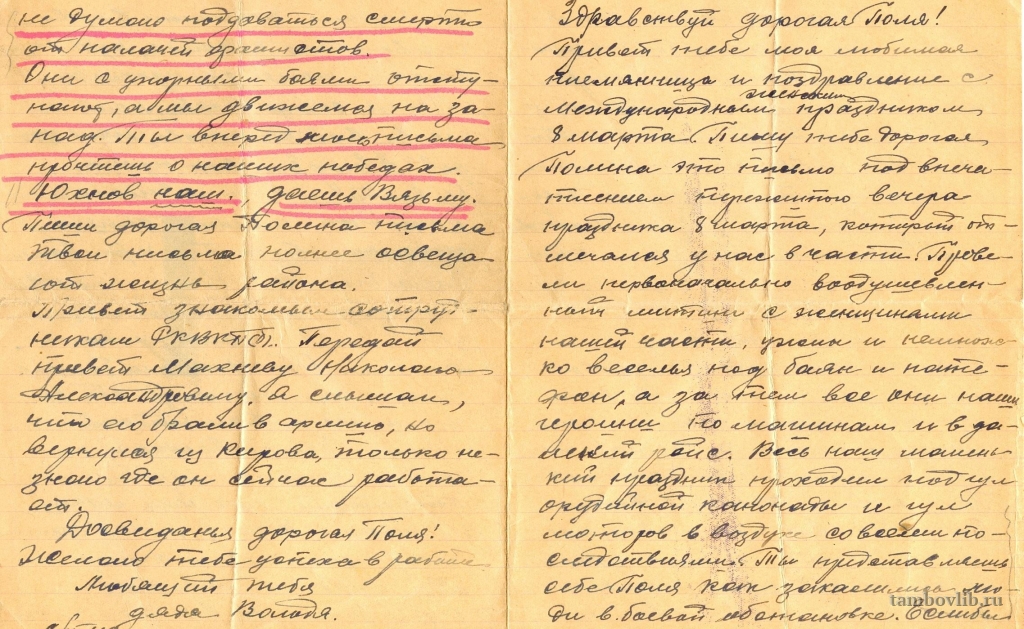 не думаю поддаваться смерти
от палачей фашистов.
Они с упорными боями отсту-
пают, а мы движемся на за-
пад. Ты вперед моего письма
прочтешь о наших победах.
Юхнов наш, даешь Вязьму.
Пиши дорогая Полина письма
твои письма полнее освеща-
ют жизнь района.
Привет знакомым сотруд-
никам РКВКП(б). Передай
привет Махневу Николаю
Александровичу, я слышал,
что его брали в армию, но
вернулся из Кирова, только не-
знаю где он сейчас работа-
ет.
Досвиданья дорогая Поля!
Желаю тебе успеха в работе.
Любящий тебя
дядя Володя.
Здравствуй дорогая Поля!
Привет тебе моя любимая
племянница и поздравление с
Международным женским праздником
8 марта. Пишу тебе дорогая
Полина это письмо под впеча-
тлением пережитого вечера
праздника 8 марта, который от-
мечался у нас в части. Прове-
ли первоначально воодушевлен-
ный митинг с женщинами
нашей части, ужин и немнож-
ко веселья под баян и пате-
фон, а за тем все они наши
героини по машинам и в да-
лекий рейс. Весь наш малень-
кий праздник проходил под гул
орудийной канонады и гул
моторов в воздухе со всеми по-
следствиями. Ты представляешь
себе Поля как закалились лю-
ди в боевой обстановке. Если бы
tambovlib.ru